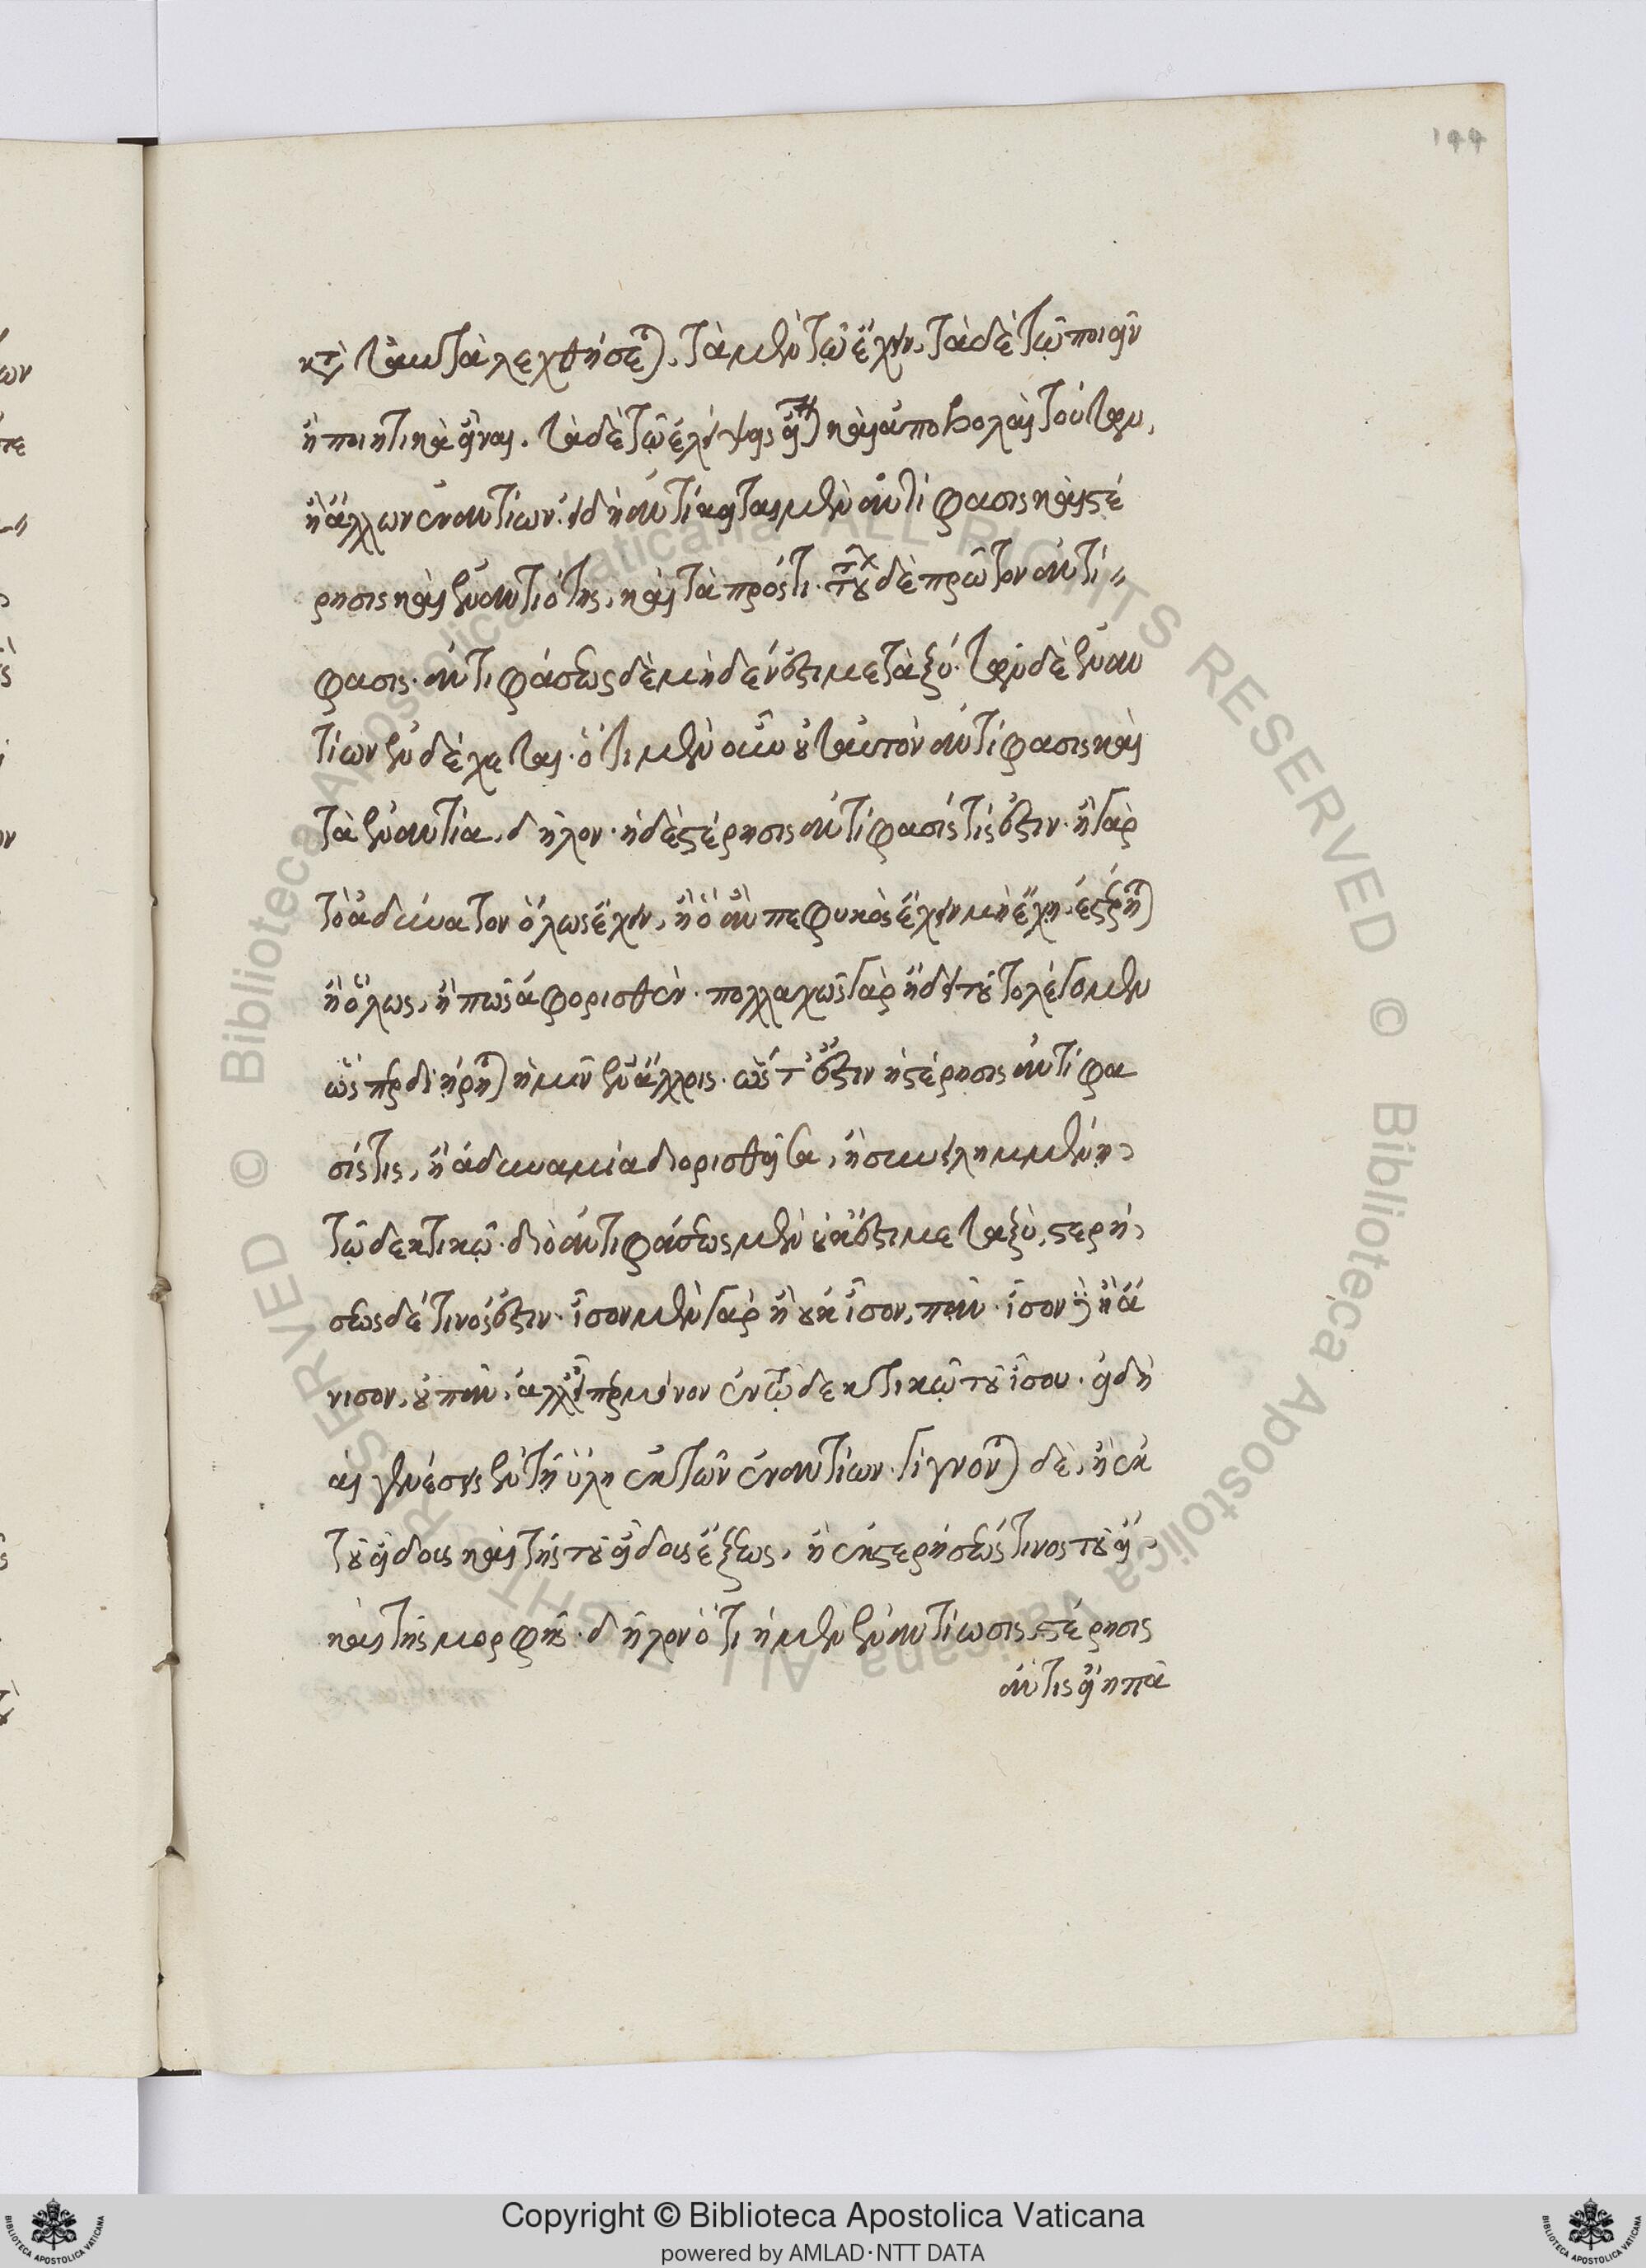 144
κατὰ ταῦτα λεχθήσεται. τὰ μὲν τῶ ἔχειν. τὰ δὲ τῶ ποιεῖν
ἢ ποιητικὰ εἶναι. τὰ δὲ τῶ λήψεις εἶναι καὶ ἀποβολαὶ τούτων,
ἢ ἄλλων ἐναντίων. εἰ δὴ ἀντίκειται μὲν ἀντίφασις καὶ στέ
ρησις καὶ ἐναντιότης, καὶ τὰ πρός τι. τούτων δὲ πρῶτον ἀντί
φασις. ἀντιφάσεως δὲ μηδέν ἐστι μεταξύ. τῶν δὲ ἐναν
τίων ἐνδέχεται. ὅτι μὲν οὖν οὐ ταυτὸν ἀντίφασις καὶ
τὰ ἐναντία, δῆλον. ἡ δὲ στέρησις ἀντίφασίς τίς ἐστιν. ἢ γὰρ
τὸ ἀδύνατον ὅλως ἔχειν, ἢ ὃ ἂν πεφυκὸς ἔχειν μὴ ἔχη. ἐστέρηται
ἢ ὅλως, ἢ πῶς ἀφορισθέν. πολλαχῶς γὰρ ἤδη τοῦτο λέγομεν
ὥσπερ διήρηται ἡμῖν ἐν ἄλλοις. ὥστ' ἔστιν ἡ στέρησις ἀντίφα
σίς τις, ἢ ἀδυναμία διορισθεῖσα, ἢ συνειλημμένη
τῶ δεκτικῶ. διὸ ἀντιφάσεως μὲν οὐκ ἔστι μεταξὺ, στερή
σεως δέ τινός ἐστιν. ἴσον μὲν γὰρ ἢ οὐκ ἴσον, πᾶν. ἴσον δ' ἢ ἄ
νισον, οὐ πᾶν. ἀλλ' εἴπερ μόνον ἐν τῶ δεκτικῶ τοῦ ἴσου. εἰ δὴ
αἱ γενέσεις ἐν τῆ ὕλη ἐκ τῶν ἐναντίων. γίγνονται δὲ, ἢ ἐκ
τοῦ εἴδους καὶ τῆς τοῦ εἴδους ἕξεως, ἢ ἐκ στερήσεώς τινος τοῦ εἴ
καὶ τῆς μορφῆς. δῆλον ὅτι ἡ μὲν ἐναντίωσις, στέρησις
ἄν τις εἴη πᾶ
Copyright © Biblioteca Apostolica Vaticana
powered by AMLAD·NTT DATA